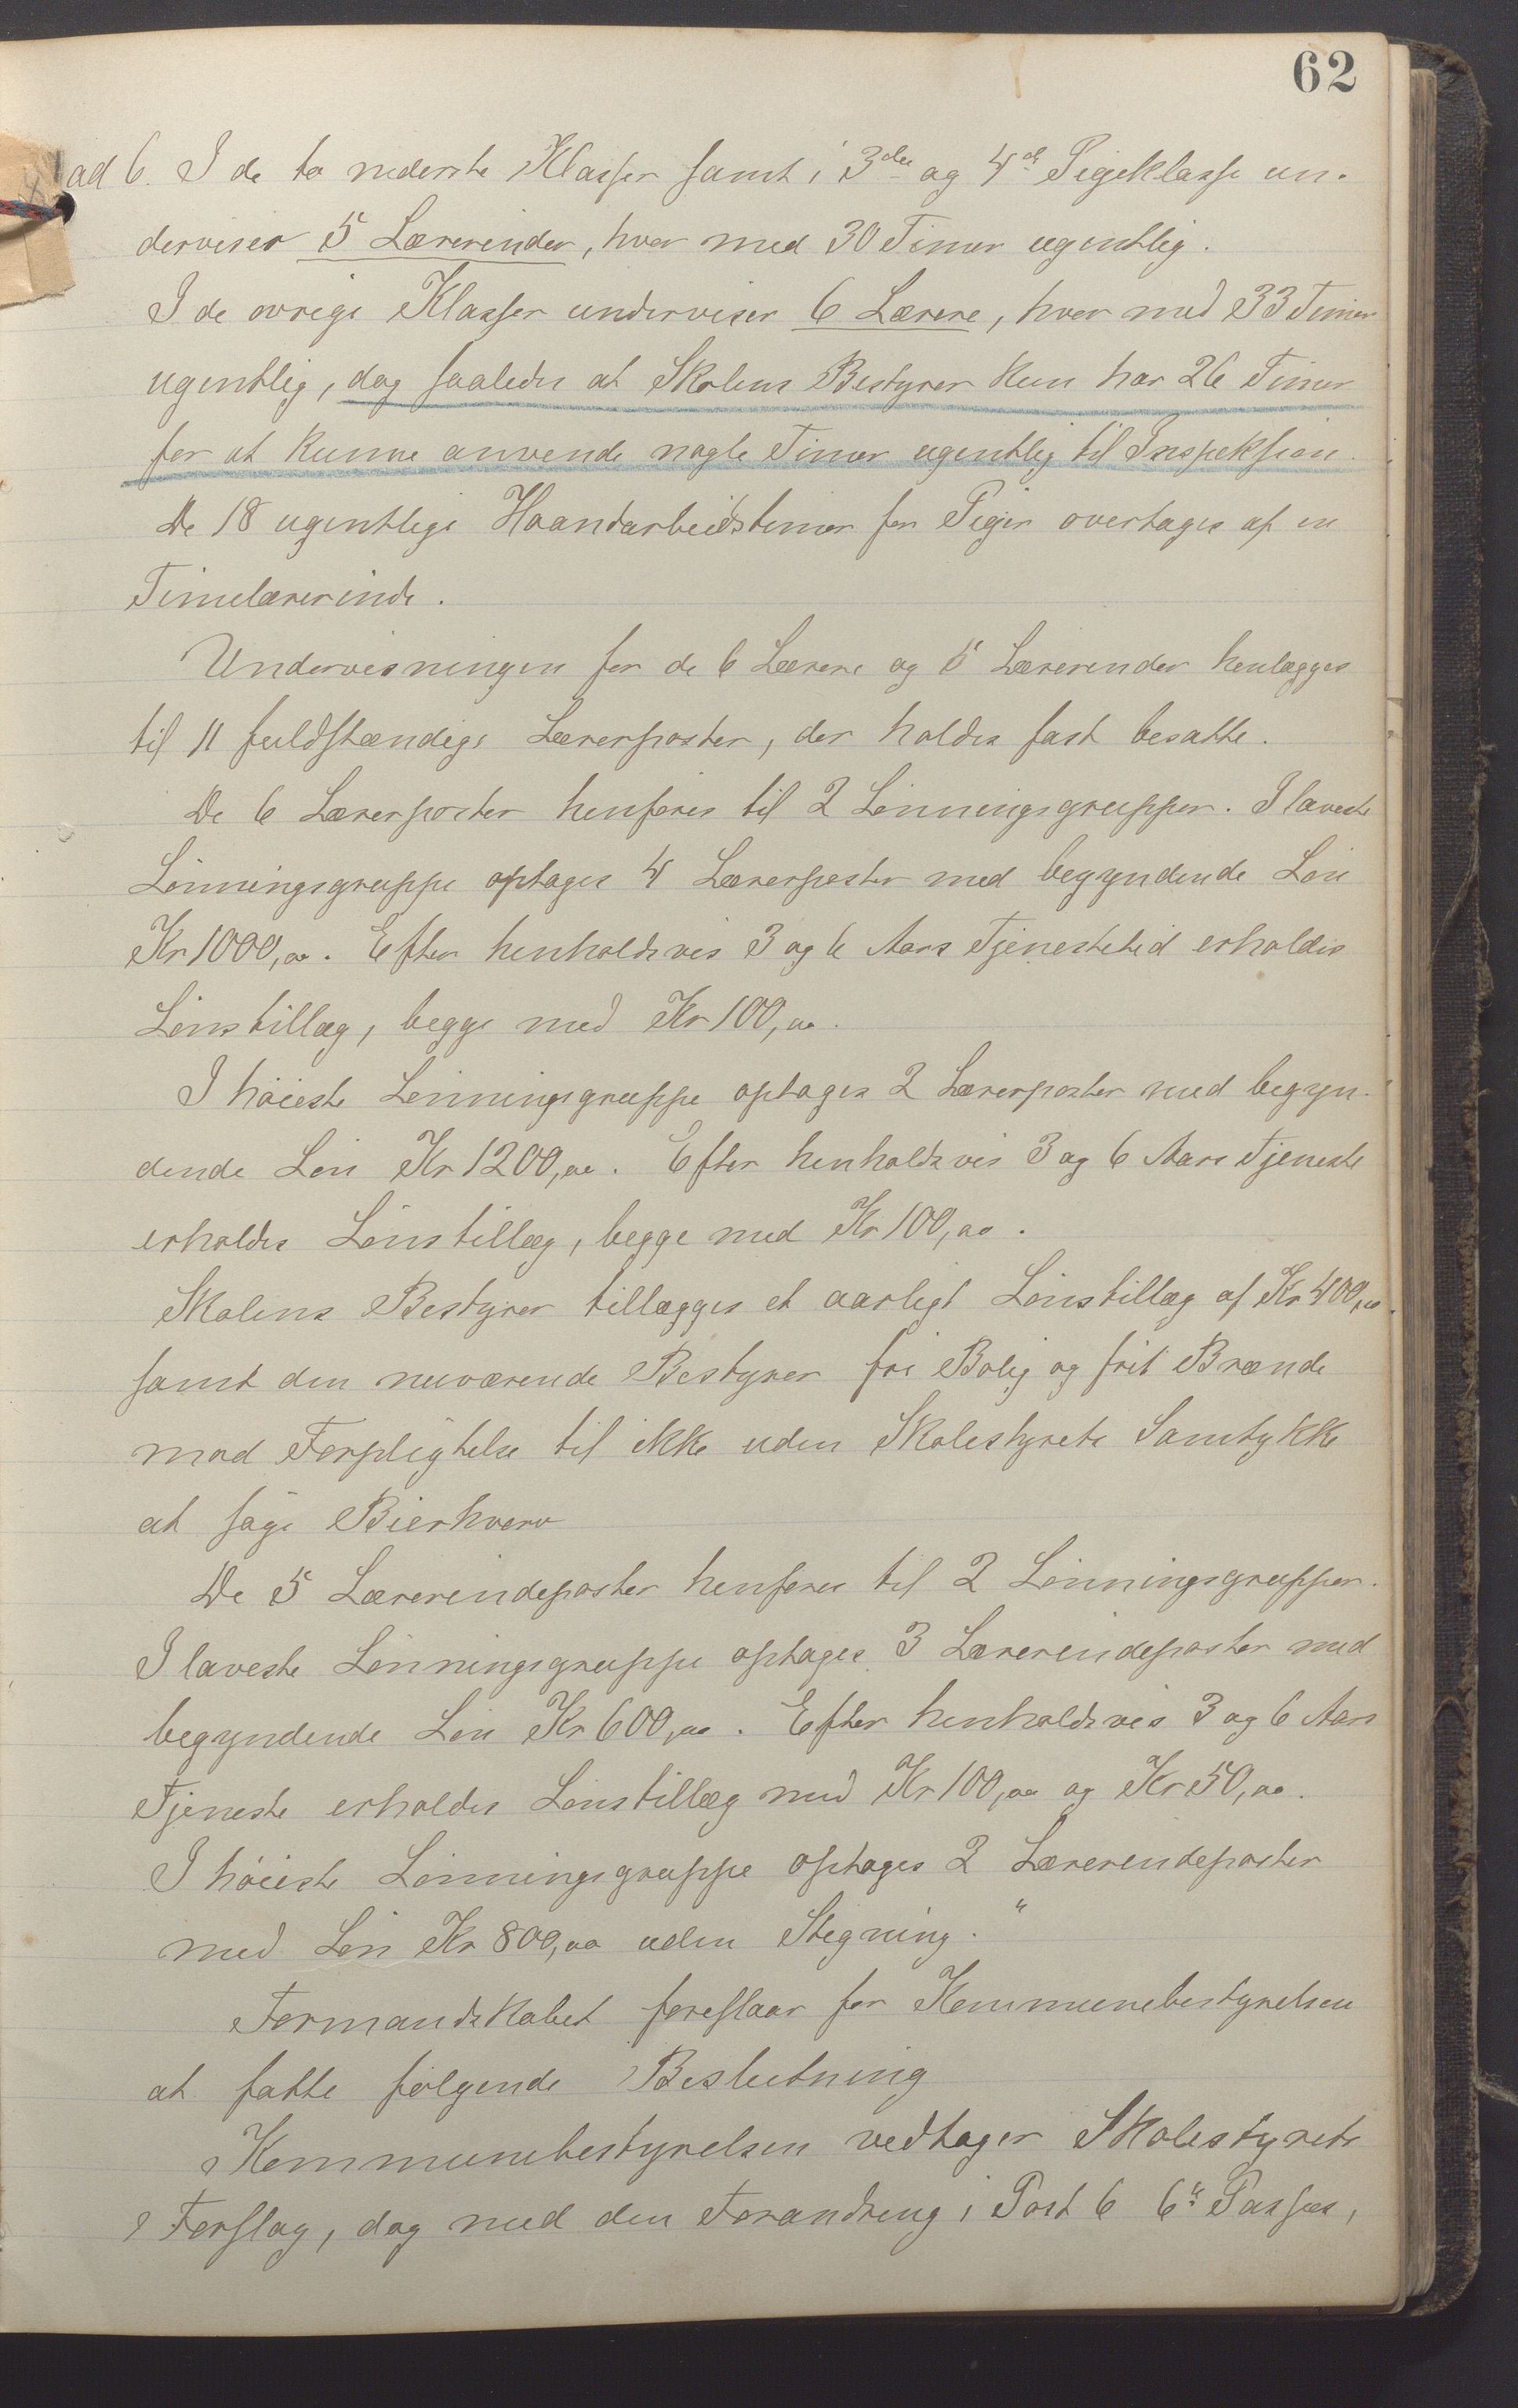 62
ad 6. I de to nederste Klasser samt i 3die og 4de Pigeklasse un-
derviser 5 Lærerinder, hver med 30 Timer ugentlig.
I de øvrige Klasser underviser 6 Lærere, hver med 33 Timer
ugentlig, dog saaledes at Skolens Bestyrer kun har 26 Timer
for at kunne anvende nogle Timer ugentlig til Inspeksion.
De 18 ugentlige Haandarbeidstimer for Piger overtages af en
Timelærerinde.
Undervisningen for de 6 Lærere og 5 Lærerinder henlægges
til 11 fuldstændige Lærerposter, der holdes fast besatte.
De 6 Lærerposter henføres til 2 Lønningsgrupper. I laveste
Lønningsgruppe optages 4 Lærerposter med begyndende Løn
Kr 1000,00. Efter henholdsvis 3 og 6 Aars Tjenestetid erholdes
Lønstillæg, begge med Kr 100,00.
I høieste Lønningsgruppe optages 2 Lærerposter med begyn-
dende Løn Kr 1200,00. Efter henholdsvis 3 og 6 Aars Tjeneste
erholdes Lønstillæg, begge med Kr 100,00.
Skolens Bestyrer tillægges et aarligt Lønstillæg af Kr 400,00
samt den nuværende Bestyrer fri Bolig og frit Brænde
mod Forpligtelse til ikke uden Skolestyrets Samtykke
at søge Bierhverv
De 5 Lærerindeposter henføres til 2 Lønningsgrupper.
I laveste Lønningsgruppe optages 3 Lærerindeposter med
begyndende Løn Kr 600,00. Efter henholdsvis 3 og 6 Aars
Tjeneste erholdes Lønstillæg med Kr 100,00 og Kr 50,00.
I høieste Lønningsgruppe optages 2 Lærerindeposter
med Løn Kr 800,00 uden Stigning."
Formandskabet foreslaar for Kommunebestyrelsen
at fatte følgende Beslutning
Kommunebestyrelsen vedtager Skolestyrets
Forslag, dog med den Forandring i Post 6 6te Passus,